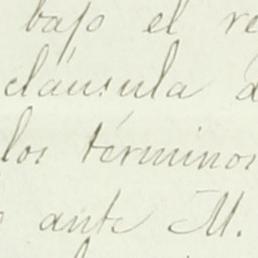 bajo el re
cláusula
los términos
ante M.